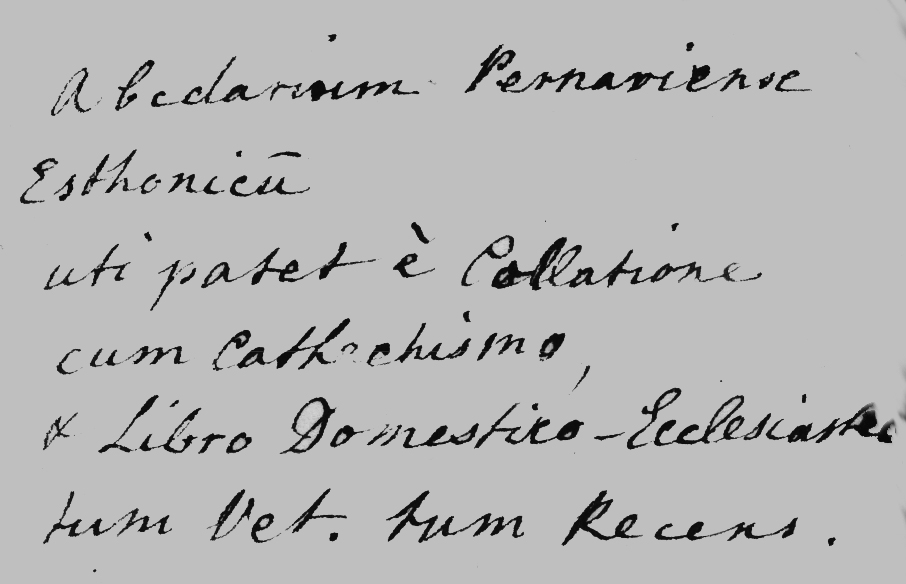 Abcdarium Pernaviense
Esthonicū
uti patet è Collatione
cum Cathechismo,
& Libro Domestico-Ecclesiastico
tum Vet. tum Recens.